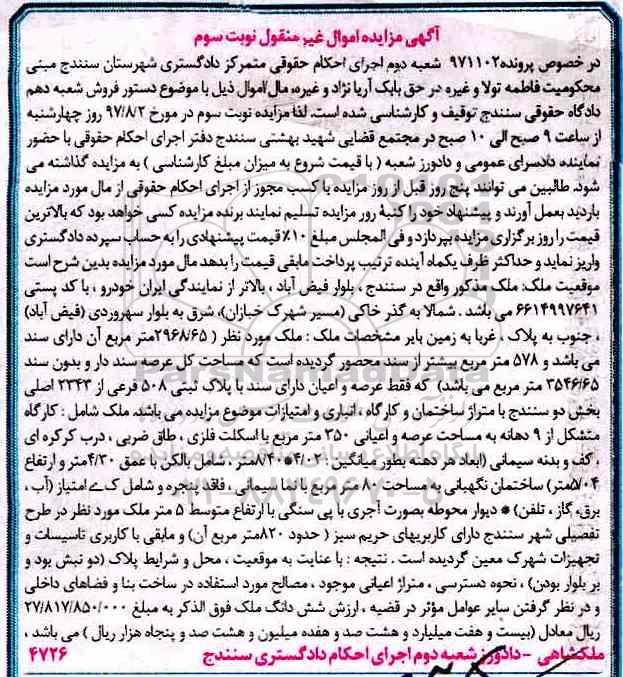 آگهی مزایده اموال غیر منقول نوبت سوم
در خصوص پرونده۹۷۱۱۰۲ شعبه دوم اجرای احکام حقوقی متمرکز دادگستری شهرستان سنندج مبنی
محکومیت فاطمه تولا و غیره در حق بابک آریا نژاد و غیره، مال/اموال ذیل با موضوع دستور فروش شعبه دهم
دادگاه حقوقی سنندج توقیف و کارشناسی شده است. لذا مزایده نوبت سوم در مورخ ۹۷/۸/۲ روز چهارشنبه
از ساعت ۹ صبح الی ۱۰ صبح در مجتمع قضایی شهید بهشتی سنندج دفتر اجرای احکام حقوقی با حضور
نماینده دادسرای عمومی و دادورز شعبه ( با قیمت شروع به میزان مبلغ کارشناسی ) به مزایده گذاشته می
شود. طالبین می توانند پنج روز قبل از روز مزایده با کسب مجوز از اجرای احکام حقوقی از مال مورد مزایده
بازدید بعمل آورند و پیشنهاد خود را کتبهٔ روز مزایده تسلیم نمایند برنده مزایده کسی خواهد بود که بالاترین
قیمت را روز برگزاری مزایده بپردازد و فی المجلس مبلغ ۱۰٪ قیمت پیشنهادی را به حساب سپرده دادگستری
واریز نماید و حداکثر ظرف یکماه آینده ترتیب پرداخت مابقی قیمت را بدهد مال مورد مزایده بدین شرح است
موقعیت ملک: ملک مذکور واقع در سنندج ، بلوار فیض آباد ، بالاتر از نمایندگی ایران خودرو ، با کد پستی
۶۶۱۴۹۹۷۶۴۱ می باشد . شمالا به گذر خاکی (مسیر شهرک خبازان)، شرق به بلوار سهروردی (فیض آباد)
، جنوب به پلاک ، غربا به زمین بایر مشخصات ملک : ملک مورد نظر ( ۲۹۶۸/۶۵متر مربع آن دارای سند
می باشد و ۵۷۸ متر مربع بیشتر از سند محصور گردیده است که مساحت کل عرصه سند دار و بدون سند
۳۵۴۶/۶۵ متر مربع می باشد) که فقط عرصه و اعیان دارای سند با پلاک ثبتی ۵۰۸ فرعی از ۲۳۴۳ اصلی
بخش دو سنندج با متراژ ساختمان و کارگاه ، انباری و امتیازات موضوع مزایده می باشد. ملک شامل : کارگاه
متشکل از ۹ دهانه به مساحت عرصه و اعیانی ۳۵۰ متر مربع با اسکلت فلزی ، طاق ضربی ، درب کرکره ای
، کف و بدنه سیمانی (ابعاد هر دهنه بطور میانگین : ۴.۰۲*۸/۴۰متر ، شامل بالکن با عمق ۴/۳۰متر و ارتفاع
۵.۷۰۴متر) ساختمان نگهبانی به مساحت ۸۰ متر مربع با نما سیمانی ، فاقد پنجره و شامل ک ے امتیاز (آب ،
برق، گاز ، تلفن) * دیوار محوطه بصورت آجری با پی سنگی با ارتفاع متوسط ۵ متر ملک مورد نظر در طرح
تفصیلی شهر سنندج دارای کاربریهای حریم سبز ( حدود ۸۲۰متر مربع آن) و مابقی با کاربری تاسیسات و
تجهیزات شهرک معین گردیده است . نتیجه : با عنایت به موقعیت ، محل و شرایط پلاک (دو نبش بود و
بر بلوار بودن) ، نحوه دسترسی ، متراژ اعیانی موجود ، مصالح مورد استفاده در ساخت بنا و فضاهای داخلی
و در نظر گرفتن سایر عوامل مؤثر در قضیه ، ارزش شش دانگ ملک فوق الذکر به مبلغ ۲۷/۸۱۷/۸۵۰/۰۰۰
ریال معادل (بیست و هفت میلیارد و هشت صد و هفده میلیون و هشت صد و پنجاه هزار ریال ) می باشد ،
ملکشاهی - دادورز شعبه دوم اجرای احکام دادگستری سنندج ۴۷۲۶
ParsNamadData
۰۲۱-۸۸۳۴۹۶۷۰-۵